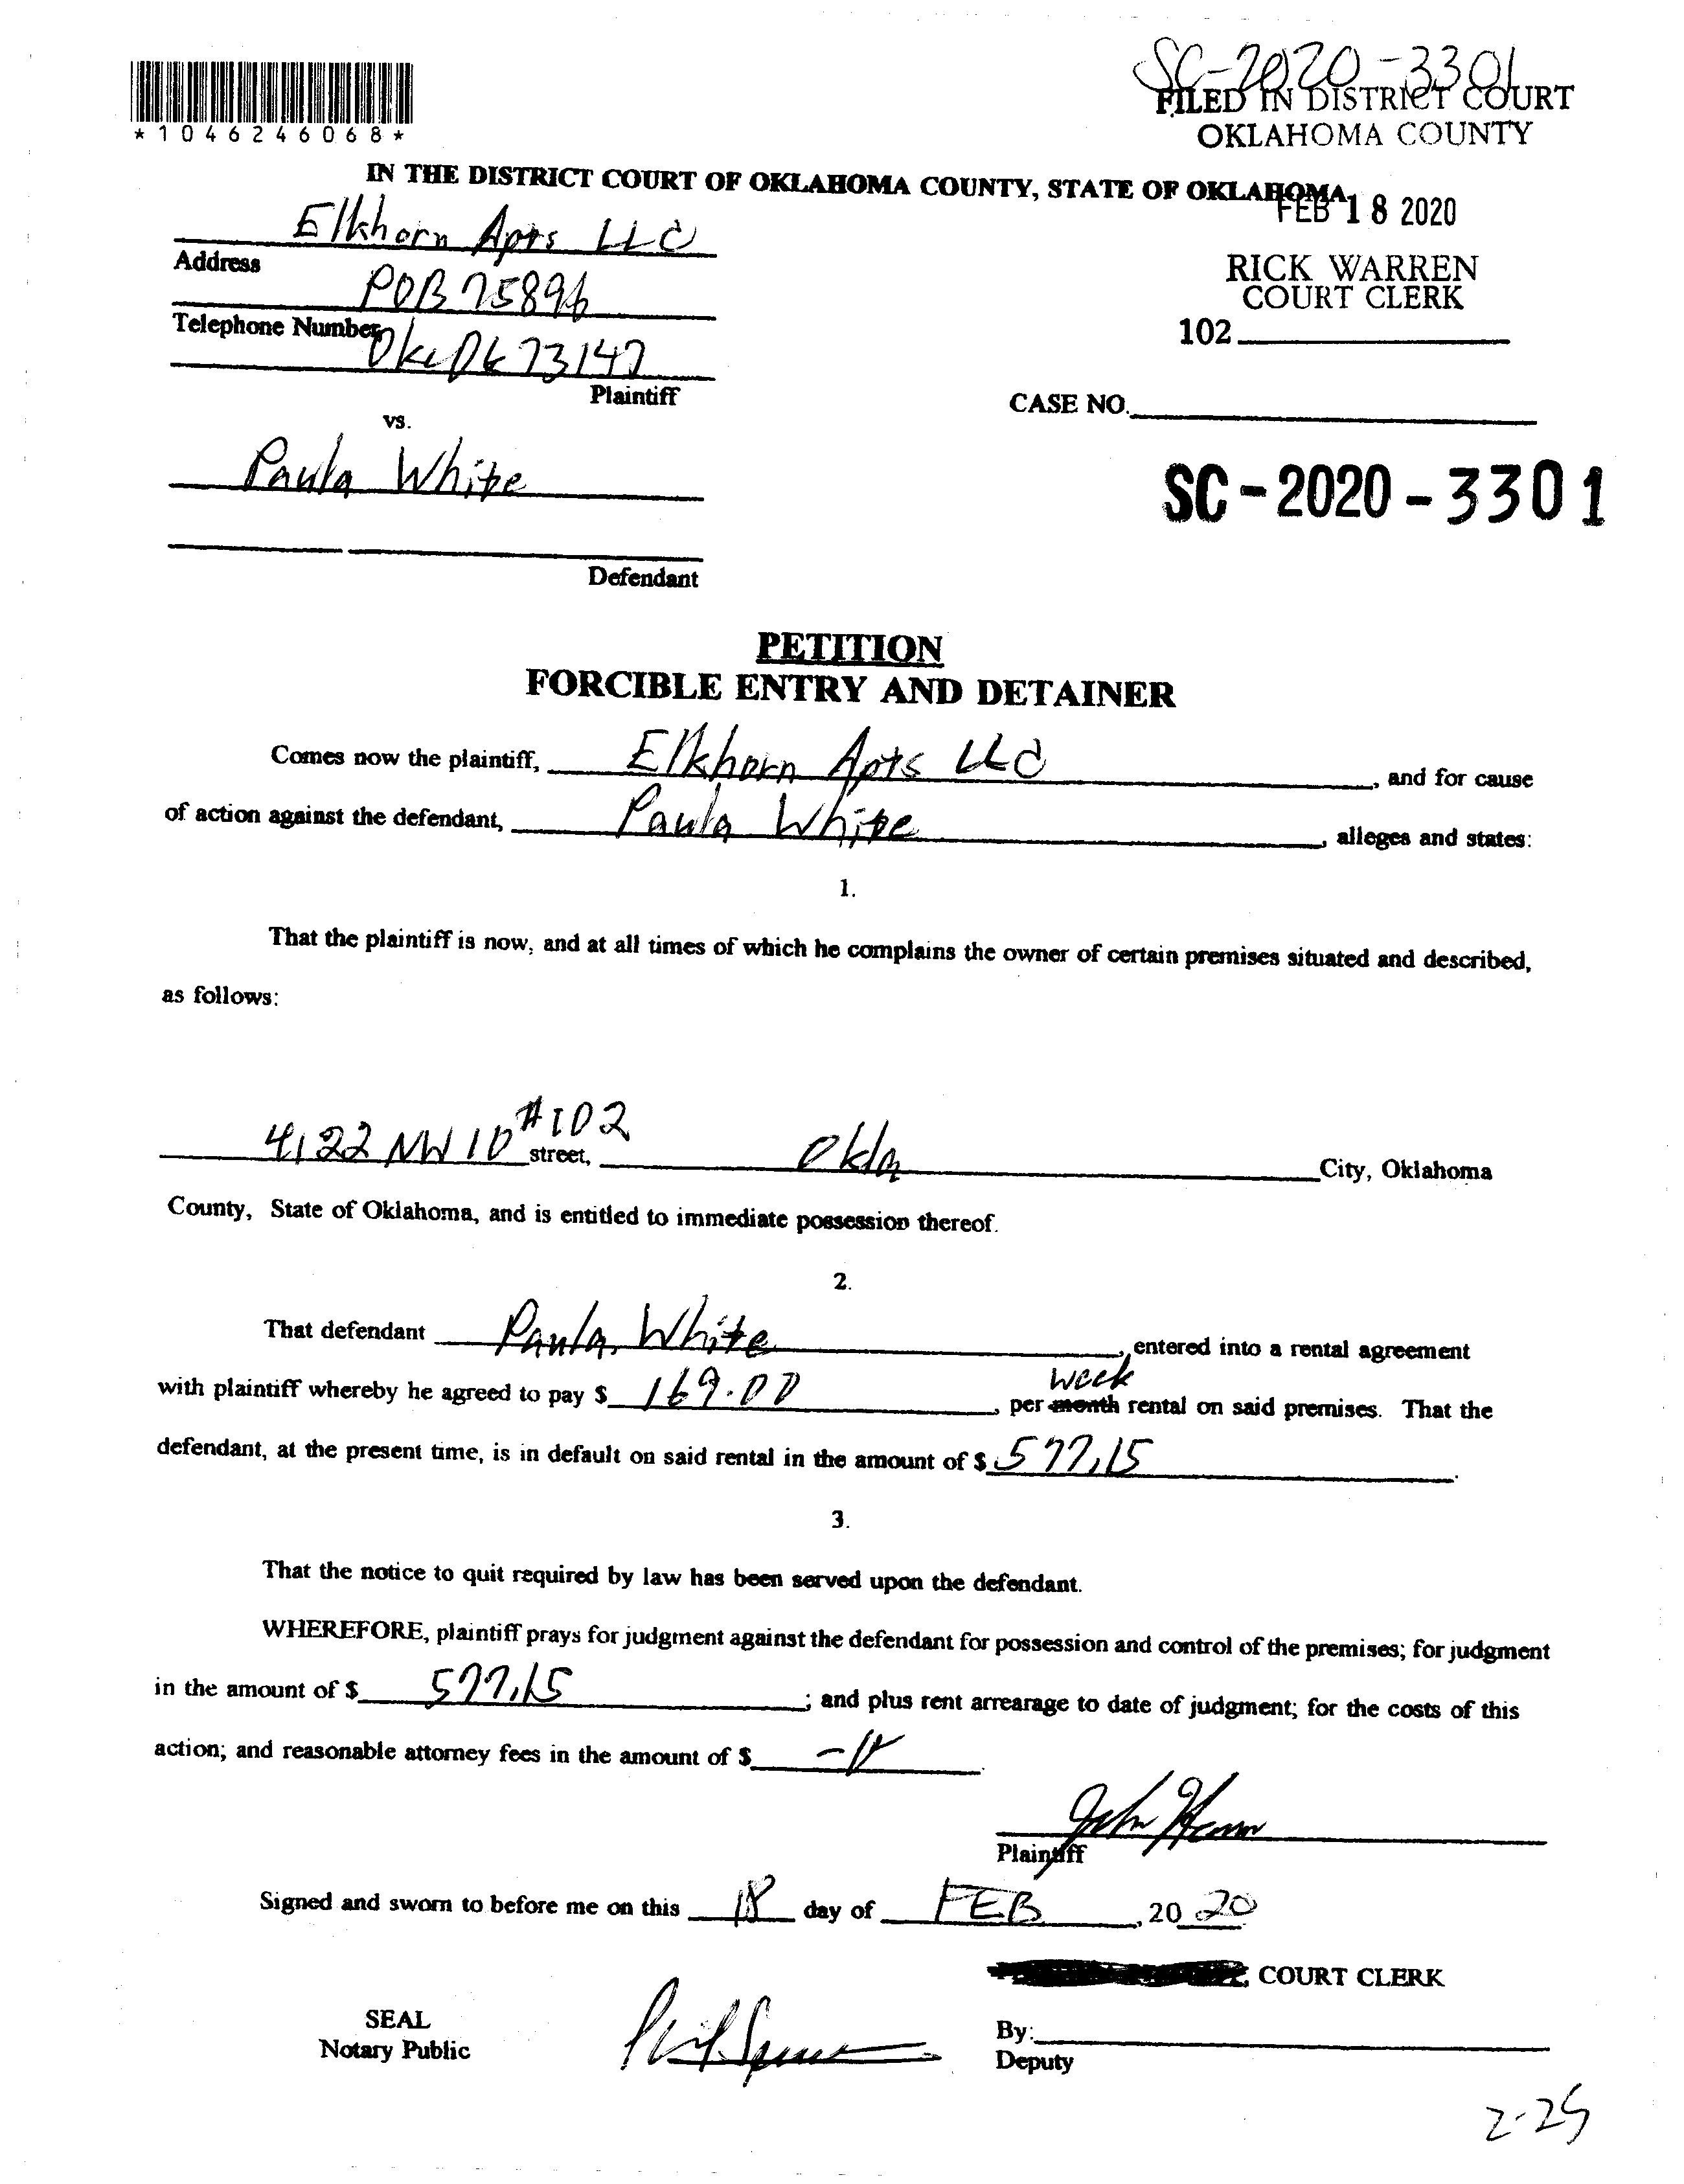 SC-2020-3301
FILED IN DISTRICT COURT
OKLAHOMA COUNTY
*1046246068*
IN THE DISTRICT COURT OF OKLAHOMA COUNTY, STATE OF OKLAHOMA
FEB 18 2020
Elkhorn Apts LLC
Address
POB 75896
RICK WARREN
COURT CLERK
Telephone Number
102
Okc Ok 73147
Plaintiff
CASE NO.
vs.
Paula White
SC-2020-3301
Defendant
PETITION
FORCIBLE ENTRY AND DETAINER
Comes now the plaintiff, Elkhorn Apts LLC, and for cause
of action against the defendant, Paula White, alleges and states:
1.
That the plaintiff is now, and at all times of which he complains the owner of certain premises situated and described,
as follows:
4122 NW 10 #102 street, Okla City, Oklahoma
County, State of Oklahoma, and is entitled to immediate possession thereof.
2.
That defendant Paula White, entered into a rental agreement
week
with plaintiff whereby he agreed to pay $ 169.00, per month rental on said premises. That the
defendant, at the present time, is in default on said rental in the amount of $ 577.15.
3.
That the notice to quit required by law has been served upon the defendant.
WHEREFORE, plaintiff prays for judgment against the defendant for possession and control of the premises; for judgment
in the amount of $ 577.15; and plus rent arrearage to date of judgment; for the costs of this
action; and reasonable attorney fees in the amount of $
Plaintiff
Signed and sworn to before me on this 18 day of FEB, 20 20
, COURT CLERK
SEAL
Notary Public
By:
Deputy
2-25